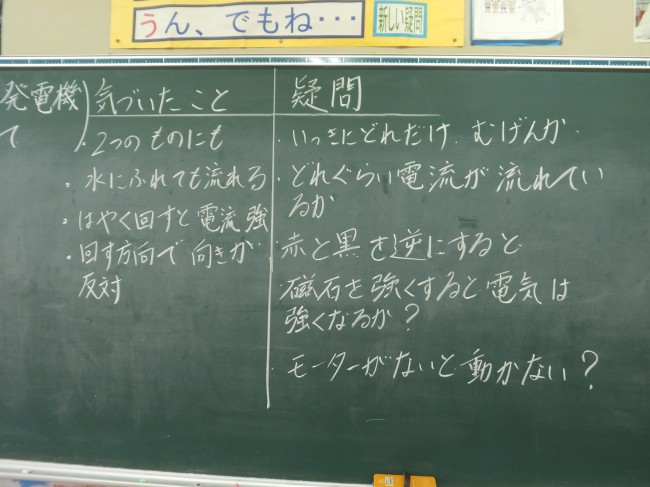 うん、でもね・・・
新しい疑問
発電機
て
気づいたこと
・2つのものにも
・水にふれても流れる
・はやく回すと電流強
・回す方向で向きが
反対
疑問
・いっきにどれだけ、むげんか
・どれぐらい電流が流れてい
るか
・赤と黒を逆にすると
・磁石を強くすると電気は
強くなるか?
・モーターがないと動かない?